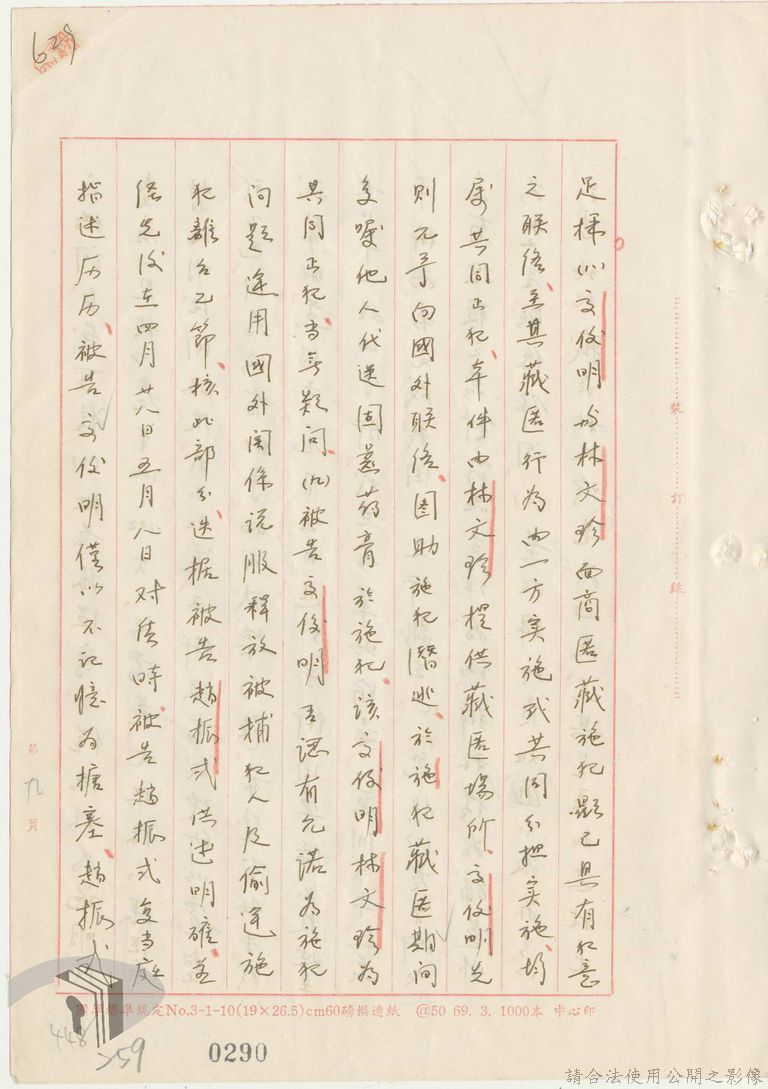 629
足稱以文俊明與林文珍面商匿藏施犯顯已具有犯意
之联络、至其藏匿行為由一方实施或共同分担实施、均
屬共同正犯、本件由林文珍提供藏匿場所、文俊明先
則允予向國外联络、圖助施犯潛逃、於施犯藏匿期間
復囑他人代送固齒药膏於施犯、該文俊明林文珍為
共同正犯、当無疑问、(九)被告文俊明否認有允諾為施犯
问题運用國外関係说服釋放被捕犯人及偷運施
犯離台乙節、核此部分迭据被告趙振弍供述明確、並
經先後在四月廿八日五月八日对质時、被告趙振弍復当庭
指述历历、被告文俊明僅以不记憶為搪塞、趙振弍
裝 訂 線
第九頁
國軍標準規定No.3-1-10(19×26.5)cm60磅模造紙 @50 69. 3. 1000本 中心印
448
259
0290
請合法使用公開之影像